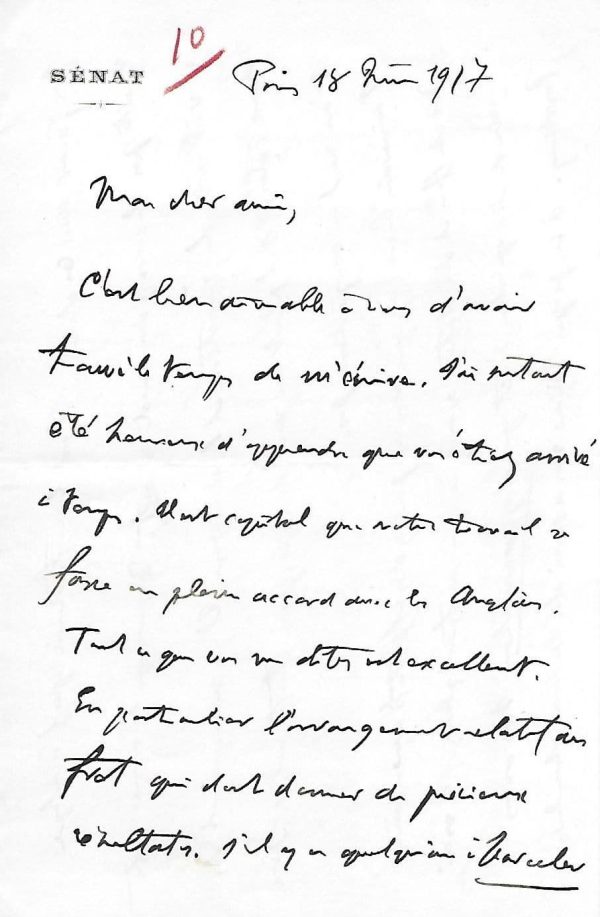 10
SÉNAT
Paris 18 Juin 1917
Mon cher ami,
C'est bien aimable à vous d'avoir
trouvé le temps de m'écrire. J'ai surtout
été heureux d'apprendre que vous étiez arrivé
à temps. Il est capital que notre travail se
fasse en plein accord avec les Anglais.
Tout ce que vous me dites est excellent.
En particulier l'arrangement relatif au
fret qui doit donner de précieux
résultats. S'il y a quelqu'un à